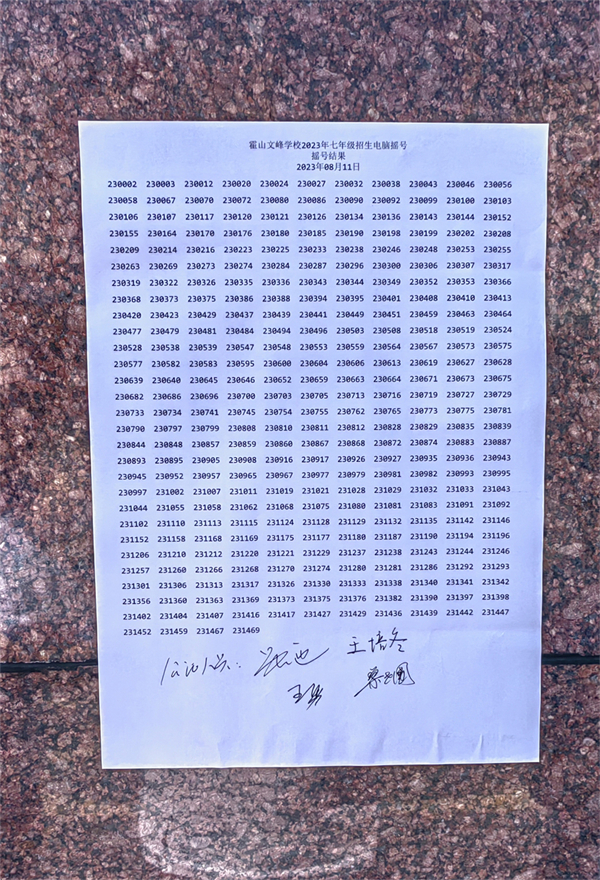 霍山文峰学校2023年七年级招生电脑摇号
摇号结果
2023年08月11日
230002 230003 230012 230020 230024 230027 230032 230038 230043 230046 230056
230058 230067 230070 230072 230080 230086 230090 230092 230099 230100 230103
230106 230107 230117 230120 230121 230126 230134 230136 230143 230144 230152
230155 230164 230170 230176 230180 230185 230190 230198 230199 230202 230208
230209 230214 230216 230223 230225 230233 230238 230246 230248 230253 230255
230263 230269 230273 230274 230284 230287 230296 230300 230306 230307 230317
230319 230322 230326 230335 230336 230343 230344 230349 230352 230353 230366
230368 230373 230375 230386 230388 230394 230395 230401 230408 230410 230413
230420 230423 230429 230437 230439 230441 230449 230451 230459 230463 230464
230477 230479 230481 230484 230494 230496 230503 230508 230518 230519 230524
230528 230538 230539 230547 230548 230553 230559 230564 230567 230573 230575
230577 230582 230583 230595 230600 230604 230606 230613 230619 230627 230628
230639 230640 230645 230646 230652 230659 230663 230664 230671 230673 230675
230682 230686 230696 230700 230703 230705 230713 230716 230719 230727 230729
230733 230734 230741 230745 230754 230755 230762 230765 230773 230775 230781
230790 230797 230799 230808 230810 230811 230812 230828 230829 230835 230839
230844 230848 230857 230859 230860 230867 230868 230872 230874 230883 230887
230893 230895 230905 230908 230916 230917 230926 230927 230935 230936 230943
230945 230952 230957 230965 230967 230977 230979 230981 230982 230993 230995
230997 231002 231007 231011 231019 231021 231028 231029 231032 231033 231043
231044 231055 231058 231062 231068 231075 231080 231081 231083 231091 231092
231102 231110 231113 231115 231124 231128 231129 231132 231135 231142 231146
231152 231158 231168 231169 231175 231177 231180 231187 231190 231194 231196
231206 231210 231212 231220 231221 231229 231237 231238 231243 231244 231246
231257 231260 231266 231268 231270 231274 231280 231281 231286 231292 231293
231301 231306 231313 231317 231326 231330 231333 231338 231340 231341 231342
231356 231360 231363 231369 231373 231375 231376 231382 231390 231397 231398
231402 231404 231407 231416 231417 231427 231429 231436 231439 231442 231447
231452 231459 231467 231469